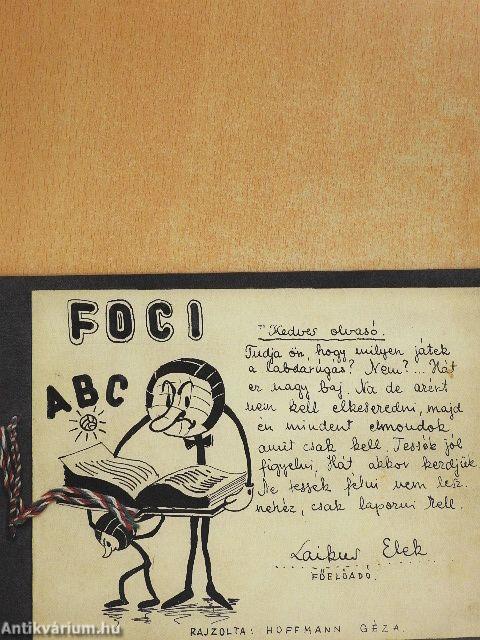 FOCI
ABC
"Kedves olvasó.
Tudja ön, hogy milyen játék
a labdarúgás? Nem?... Hát
ez nagy baj. Na de azért
nem kell elkeseredni, majd
én mindent elmondok
amit csak kell. Tessék jól
figyelni. Hát akkor kezdjük.
Ne tessék félni nem lesz
nehéz, csak lapozni kell.
Laikus Elek
FŐELŐADÓ.
RAJZOLTA: HOFFMANN GÉZA.
Antikvárium.hu